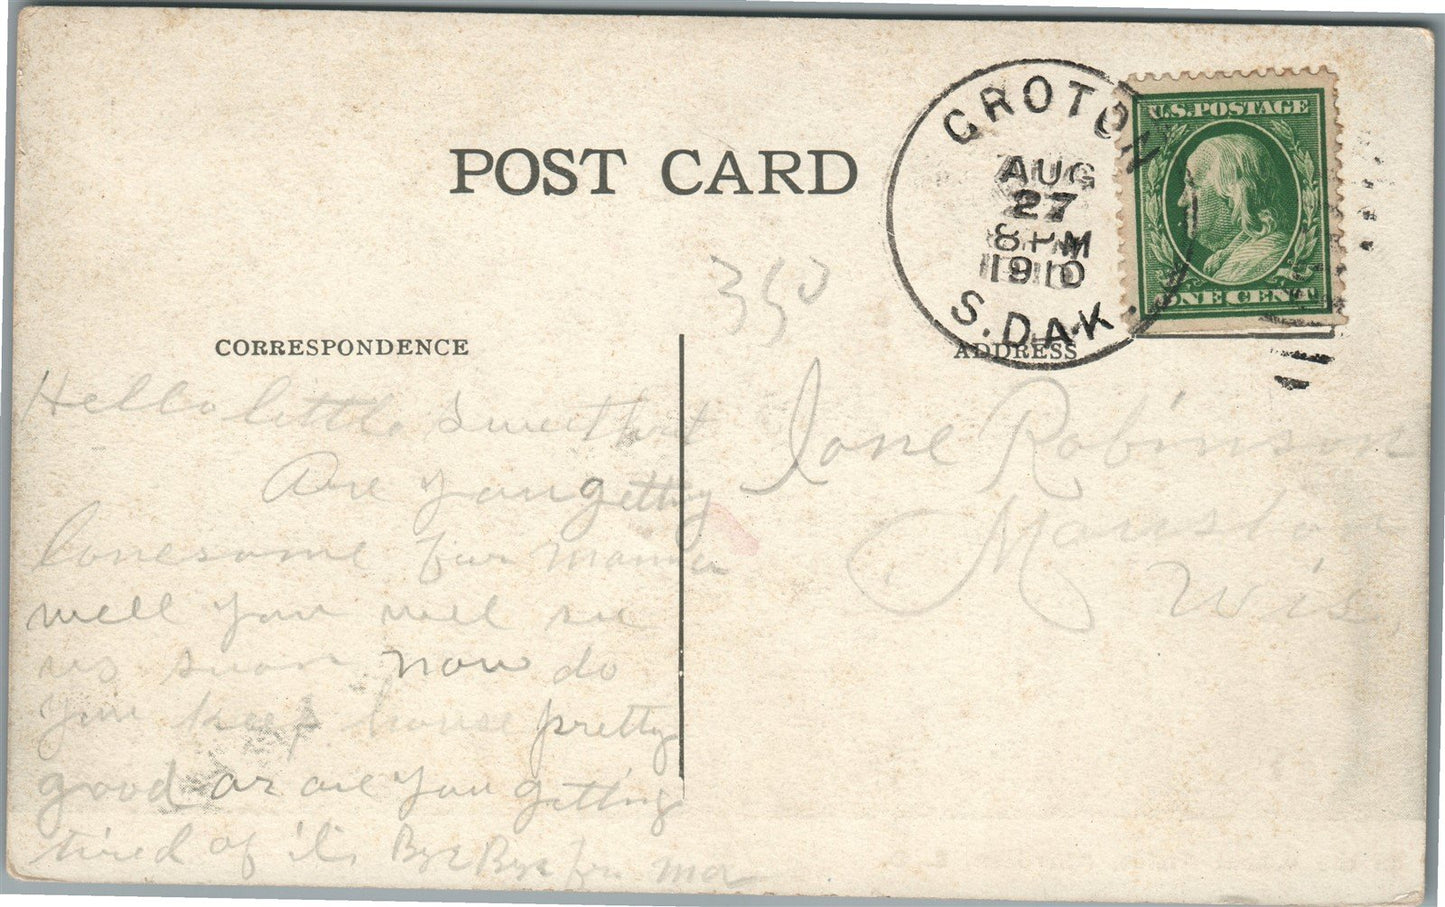 POST CARD
GROTON
AUG
27
8 PM
1910
S.DAK.
U.S. POSTAGE
ONE CENT
350
CORRESPONDENCE
ADDRESS
Hello little Sweethart
Are you getting
lonesome fur mama
well you will see
us suan now do
you keep house pretty
good or are you getting
tired of it Bye Bye fr ma
Ione Robinson
Mauston
Wis.